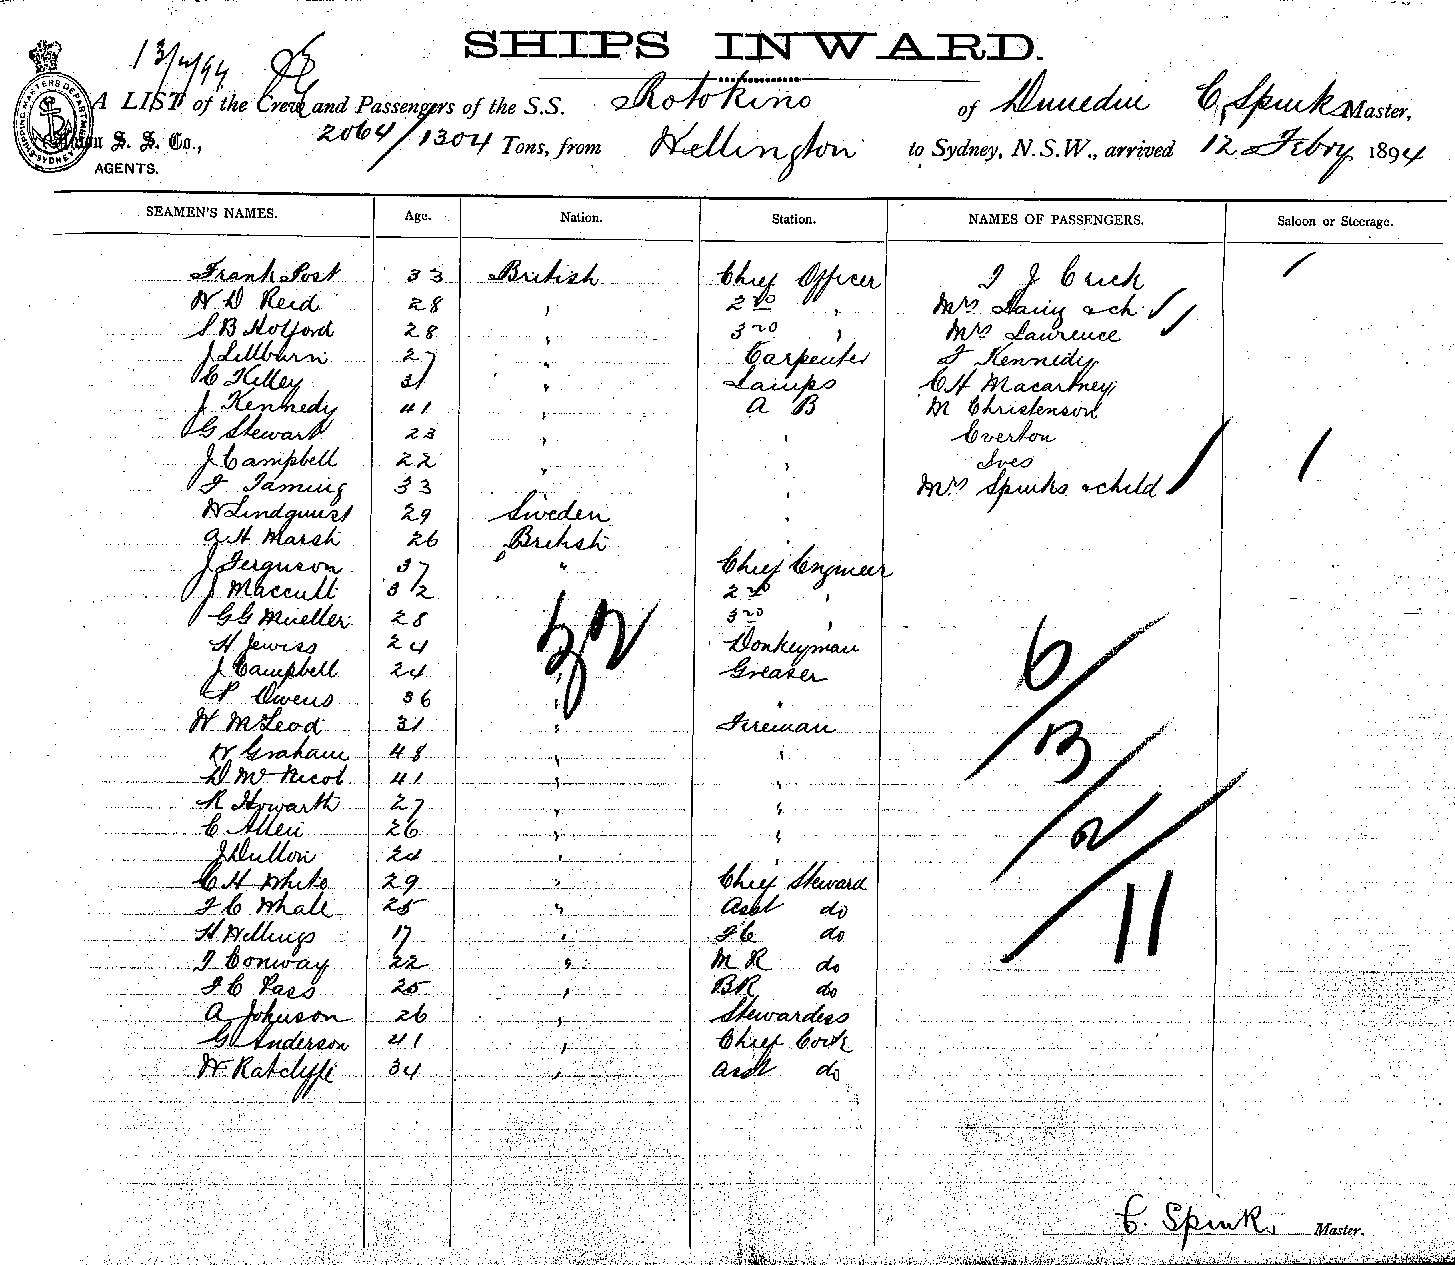 SHIPS INWARD.
13/2/94
A LIST of the Crew and Passengers of the S.S. Rotokino of Dunedin C. Spinks Master,
Union S. S. Co., 2064/1304 Tons, from Wellington to Sydney, N.S.W., arrived 12 Febry 1894
AGENTS.
SHIPPING MASTERS DEPARTMENT SYDNEY
SEAMEN'S NAMES. Age. Nation. Station. NAMES OF PASSENGERS. Saloon or Steerage.
Frank Post 33 British Chief Officer T J Crick /
W D Reid 28 " 2nd " Mrs & ch
S B Holford 28 " 3rd " Mrs Laurence
J Lillburn 27 " Carpenter F Kennedy
C Kelley 31 " Lamps C H Macartney
J Kennedy 41 " A B M Christenson
G Stewart 23 " " Everton
J Campbell 22 " " Ives
F Taming 33 " Mrs Spinks & child /
W Lindquist 29 Sweden "
A H Marsh 26 British
J Ferguson 37 " Chief Engineer
J Maccull 32 2nd "
G G Mueller 28 3rd "
H Jewiss 24 Donkeyman
J Campbell 24 " Greaser
P Owens 36 " "
W McLeod 31 " Fireman
W Graham 48 " "
D McNicol 41 " "
R Howarth 27 " "
C Allen 26 " "
J Dutton 24 " "
C H White 29 " Chief Steward
F C Whall 25 " Asst do
H Willings 17 " F C do
T Conway 22 " M R do
F C Pass 25 " B R do
A Johnson 26 " Stewardess
G Anderson 41 " Chief Cook
W Ratclyffe 34 " Asst do
32
6/3/2/11
C. Spinks, Master.